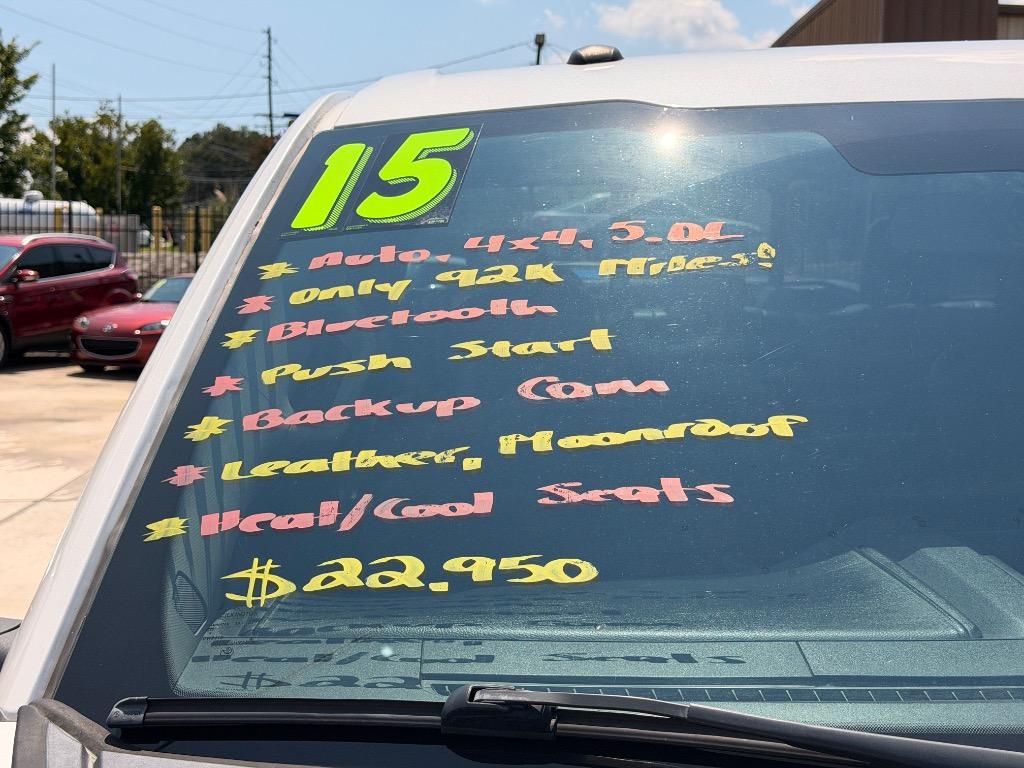 15
* Auto, 4x4, 5.0L
* Only 92K Miles!
* Bluetooth
* Push Start
* Backup Cam
* Leather, Moonroof
* Heat/Cool Seats
$22,950